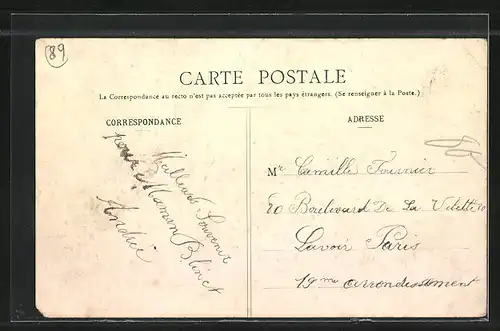 89
CARTE POSTALE
La Correspondance au recto n'est pas acceptée par tous les pays étrangers. (Se renseigner à la Poste.)
CORRESPONDANCE
Meilleurs Souvenir
pour Maman Blinet
Andrée
ADRESSE
Mr Camille Fournier
20 Boulevard De La Villette 20
Lavoir Paris
19me arrondissement